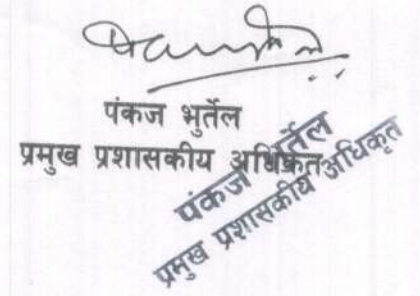 पंकज भुर्तेल
प्रमुख प्रशासकीय अधिकृत
पंकज भुर्तेल
प्रमुख प्रशासकीय अधिकृत